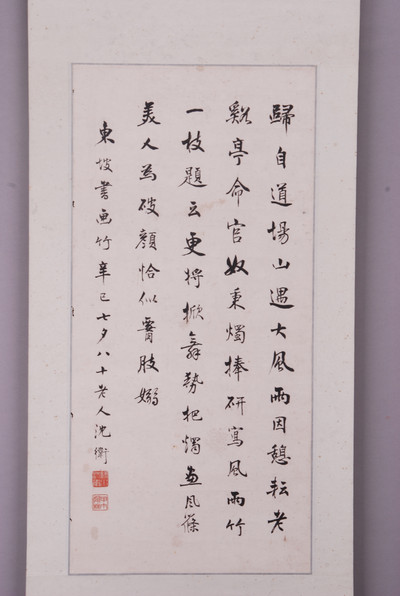 歸自道場山遇大風雨因憩耘老
谿亭命官奴秉燭捧研寫風雨竹
一枝題云更將掀舞勢把燭畫風篠
美人為破顏恰似霄肢嫋
東坡書画竹辛巳七夕八十老人沈衛